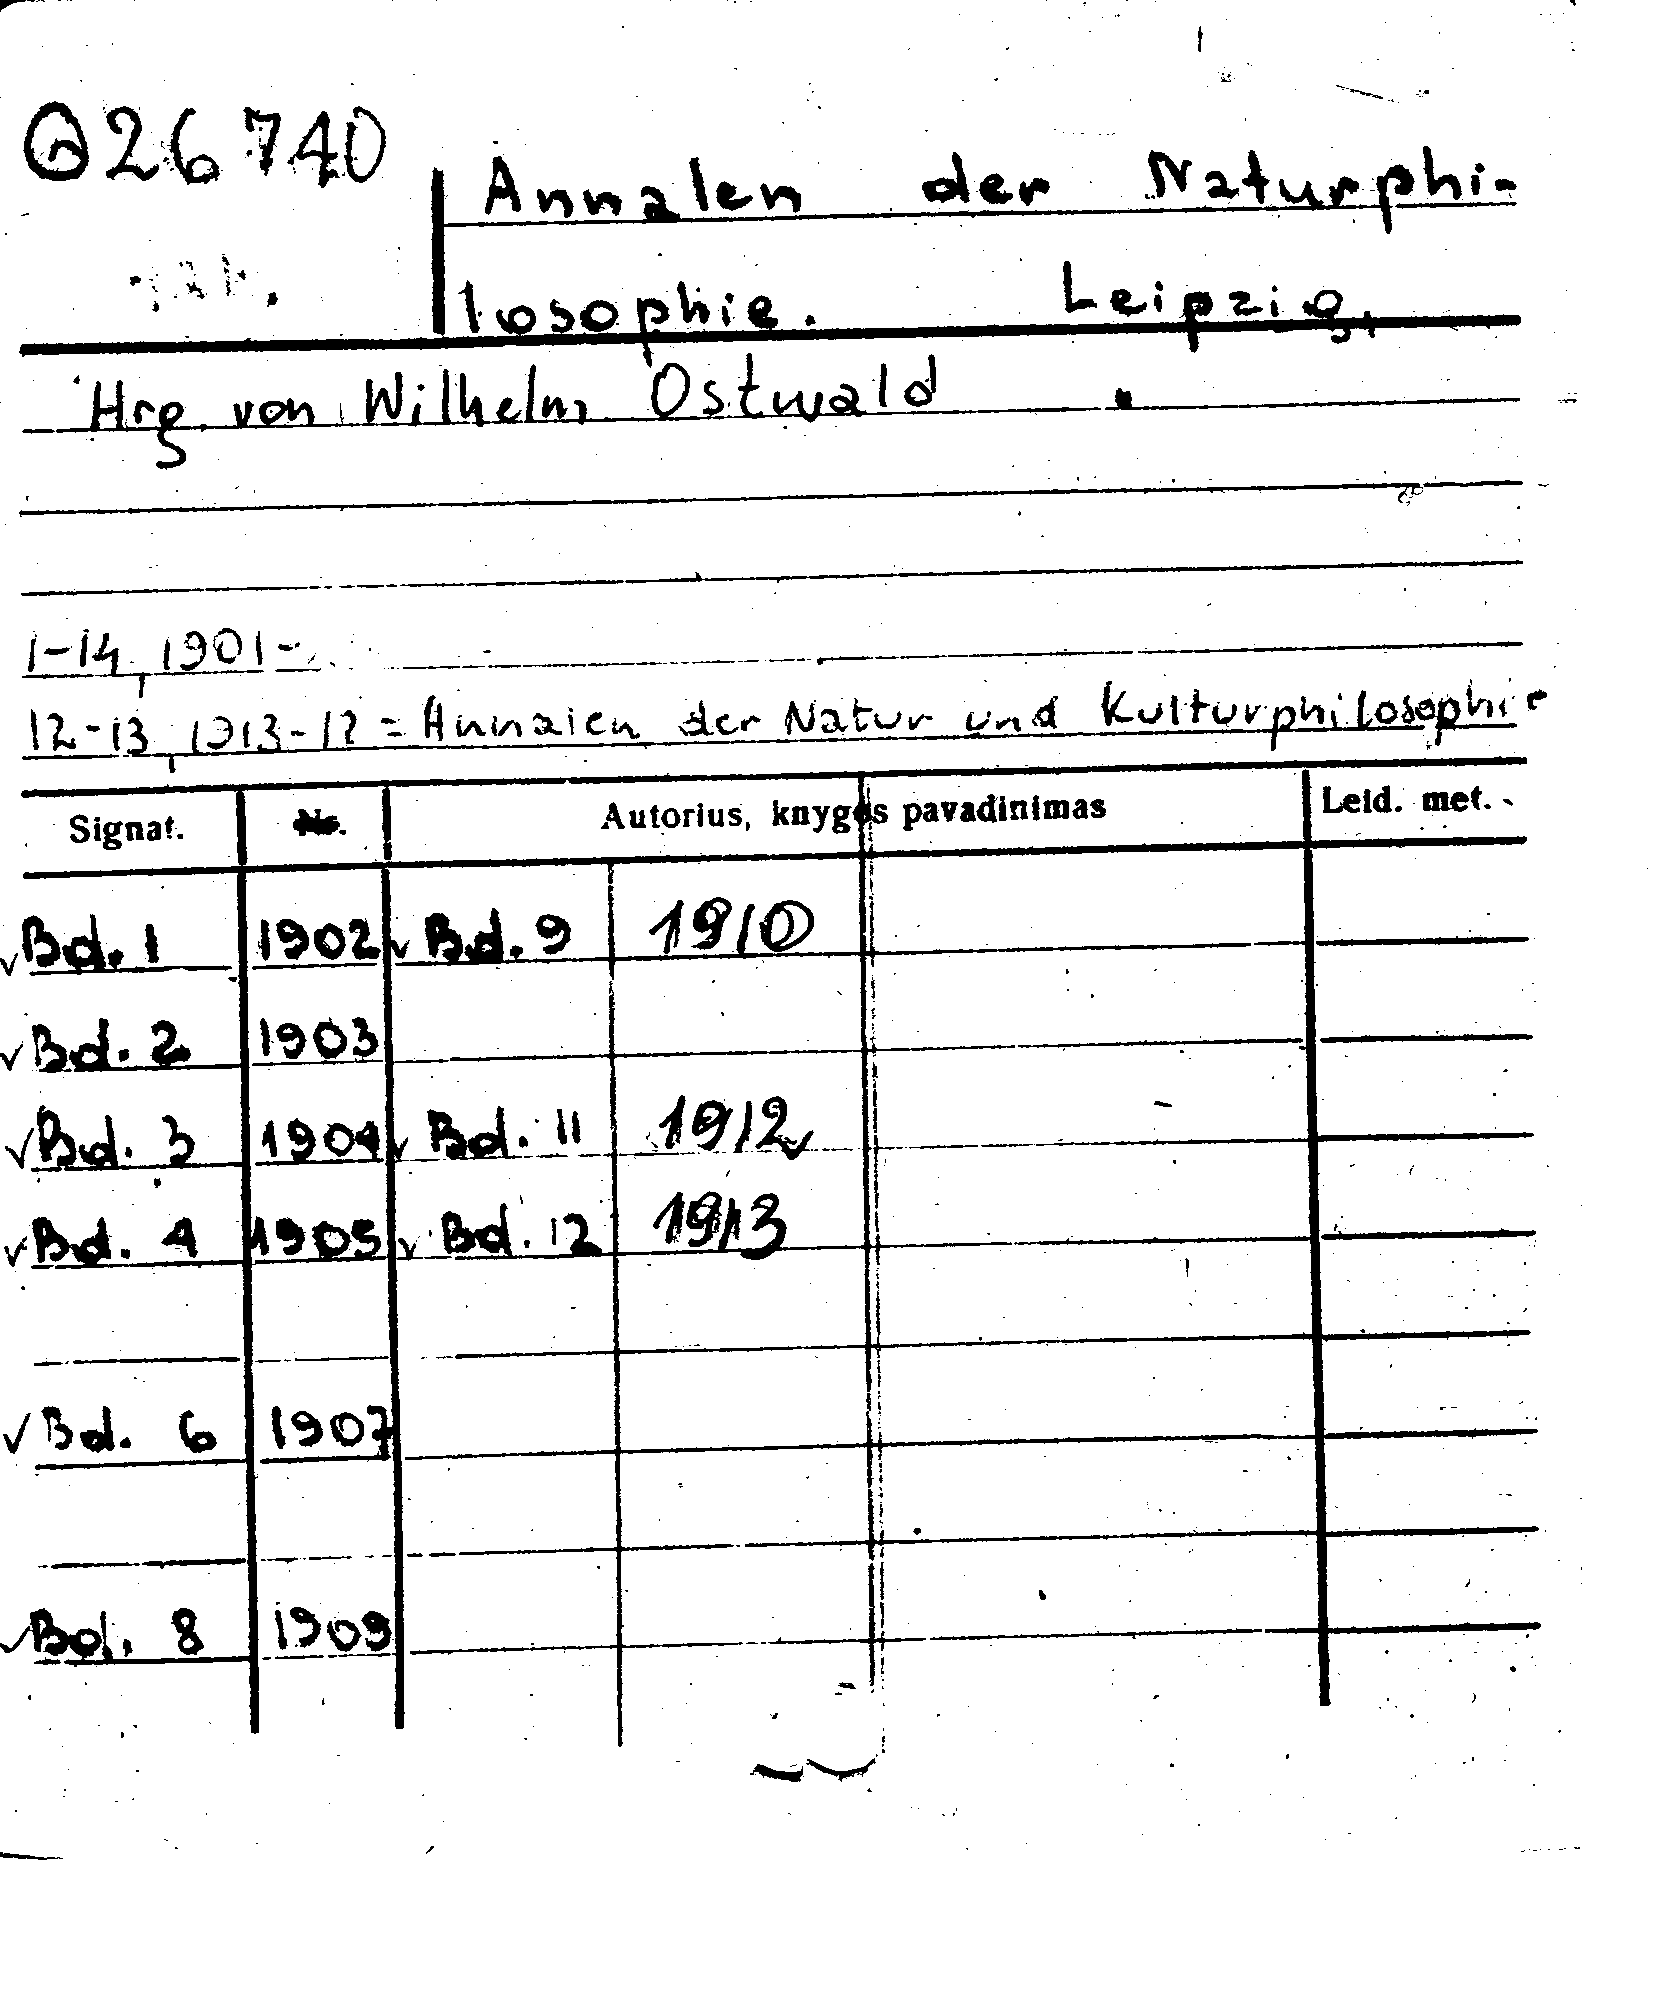 Q26740
Annalen der Naturphi-
losophie. Leipzig,
Hrg. von Wilhelm Ostwald
1-14, 1901-
12-13, 1913-17 = Annalen der Natur und Kulturphilosophie
Signat. Nr. Autorius, knygos pavadinimas Leid. met.
✓ Bd. 1 1902 ✓ Bd. 9 1910
✓ Bd. 2 1903
✓ Bd. 3 1904 ✓ Bd. 11 1912 ✓
✓ Bd. 4 1905 ✓ Bd. 12 1913
✓ Bd. 6 1907
✓ Bd. 8 1909